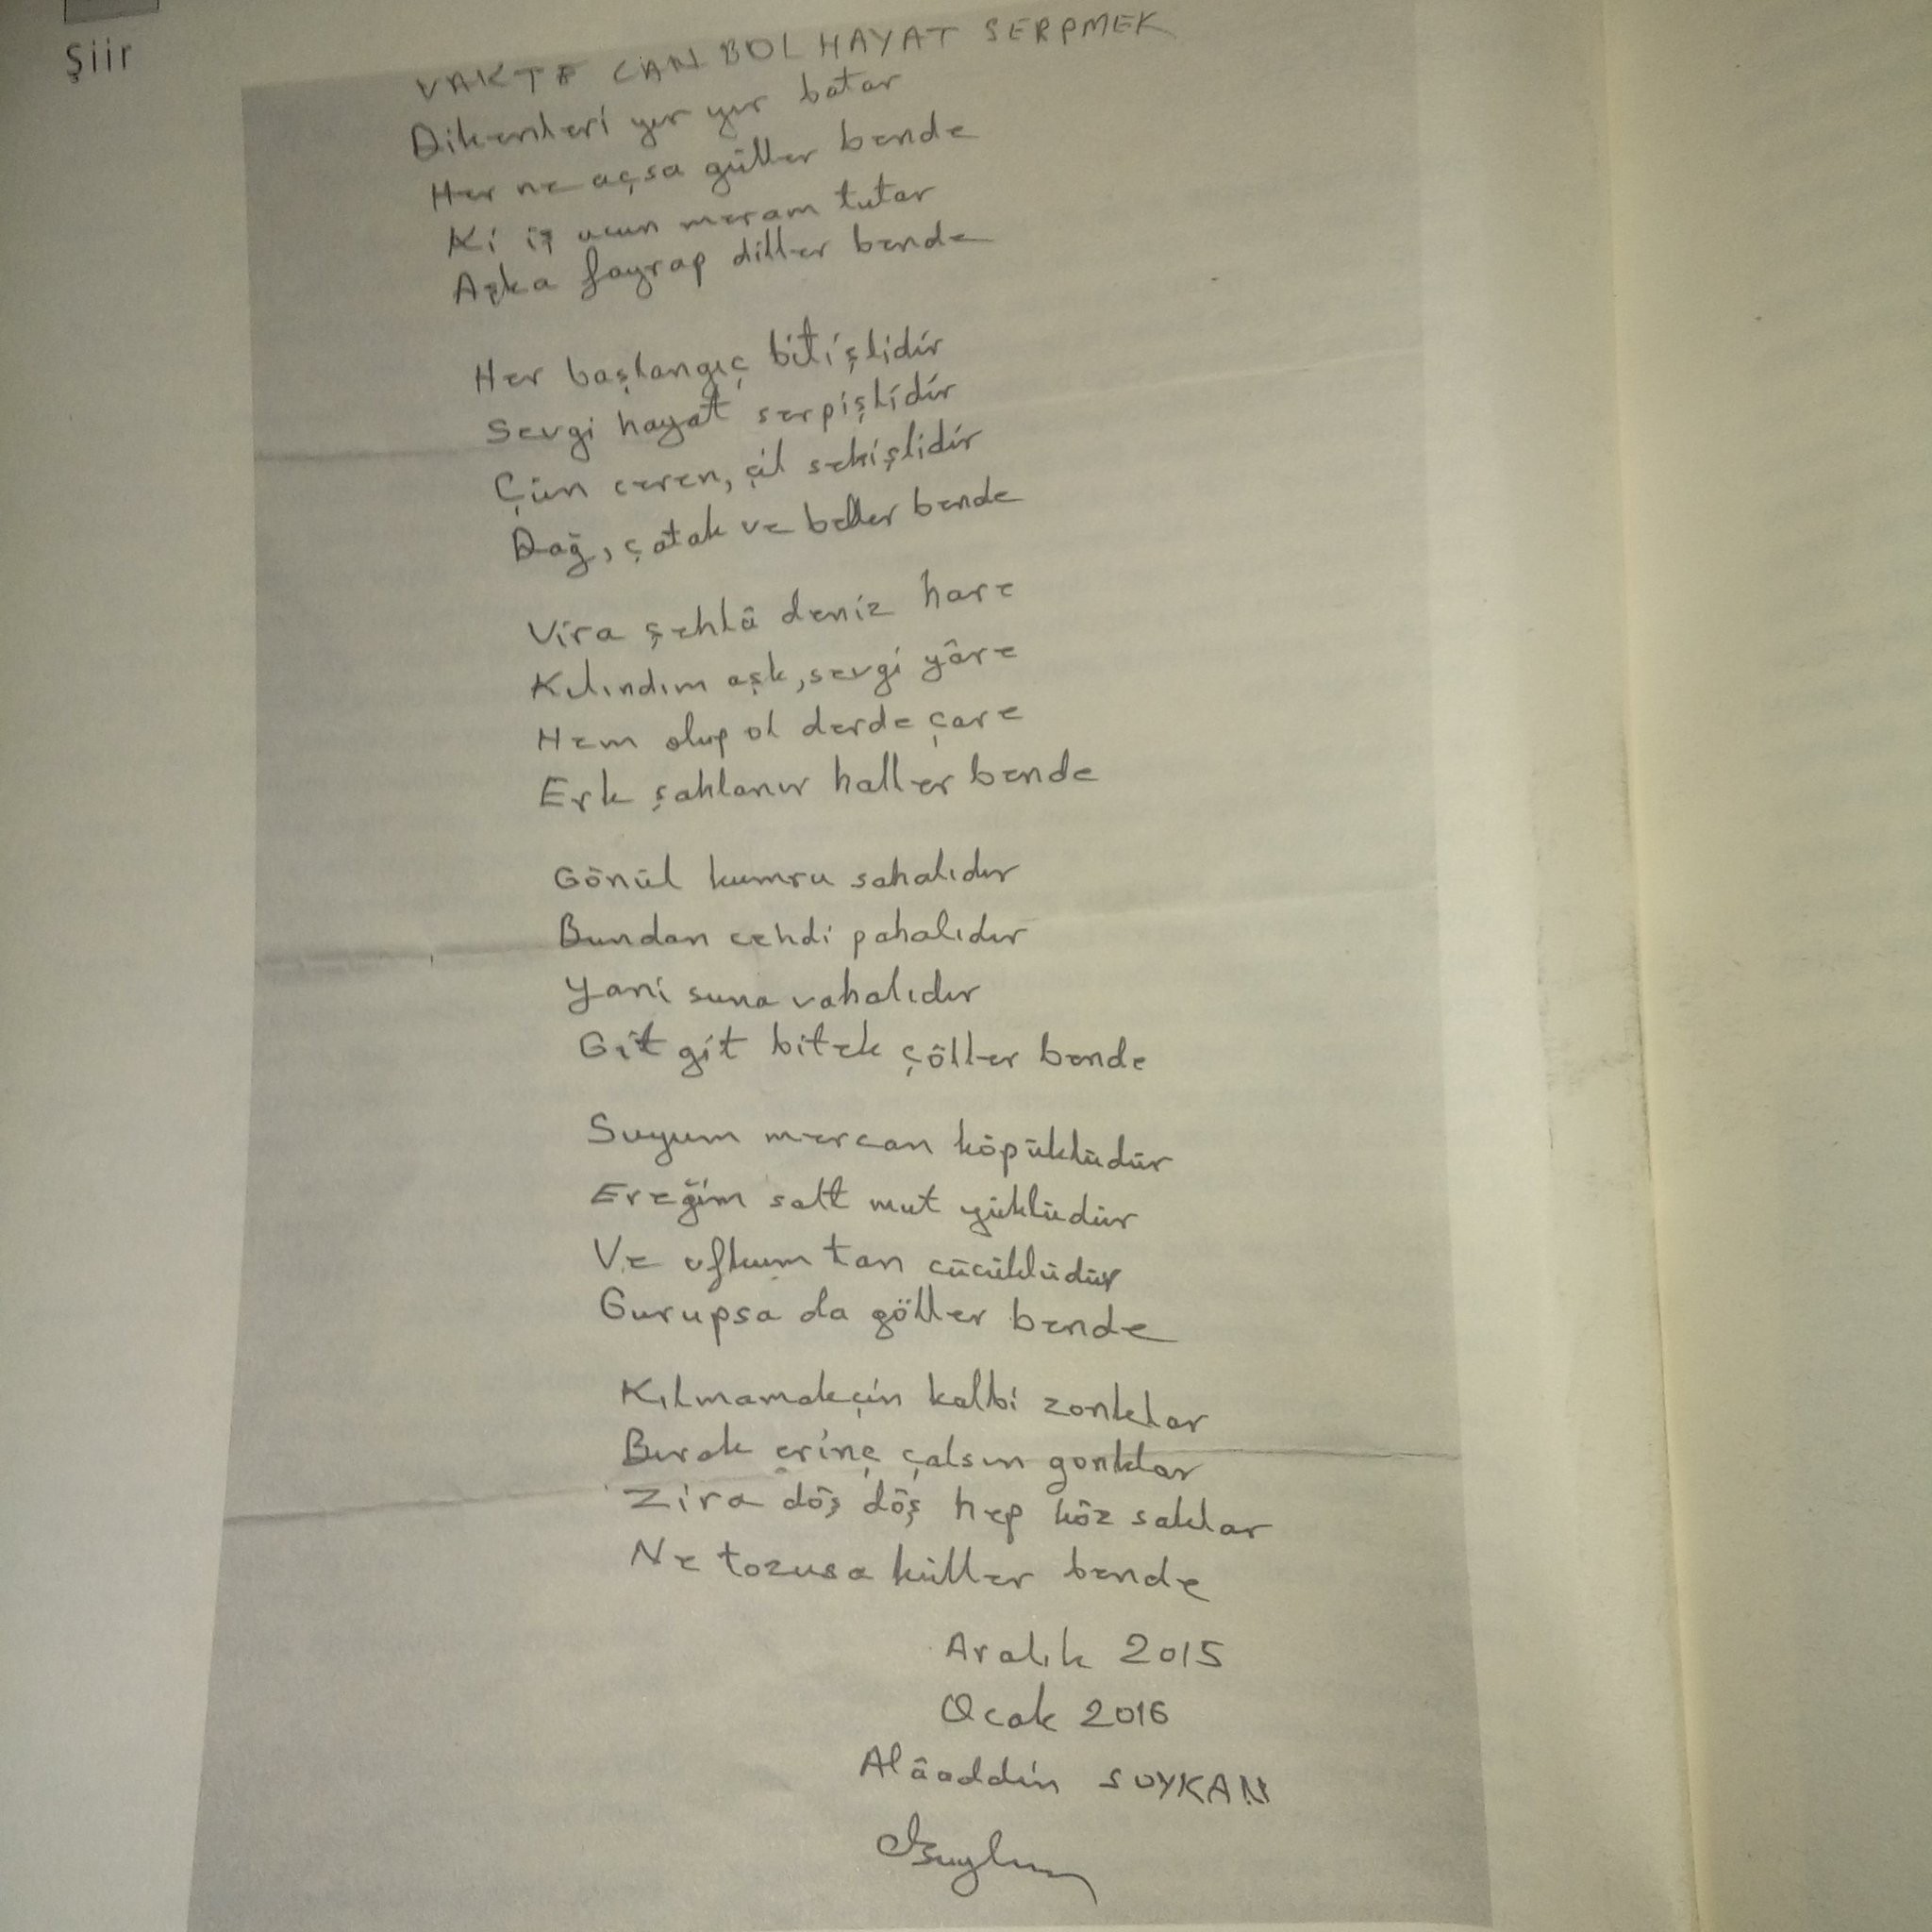 Şiir
VAKTE CAN BOL HAYAT SERPMEK
Dikenleri yer yer batar
Her ne açsa güller bende
Ki iş ucun meram tutar
Aşka fayrap diller bende
Her başlangıç bitişlidir
Sevgi hayat serpişlidir
Çün ceren, çil sekişlidir
Dağ, çatak ve beller bende
Vira şehlâ deniz hare
Kılındım aşk, sevgi yâre
Hem olup ol derde çare
Erk şahlanır haller bende
Gönül kumru sahalıdır
Bundan cehdi pahalıdır
Yani suna vahalıdır
Git git bitek çöller bende
Suyum mercan köpüklüdür
Ereğim salt mut yüklüdür
Ve ufkum tan cücüklüdür
Gurupsa da göller bende
Kılmamakçin kalbi zonklar
Bırak erinç çalsın gonklar
Zira döş döş hep köz saklar
Ne tozusa küller bende
Aralık 2015
Ocak 2016
Alâaddin SOYKAN